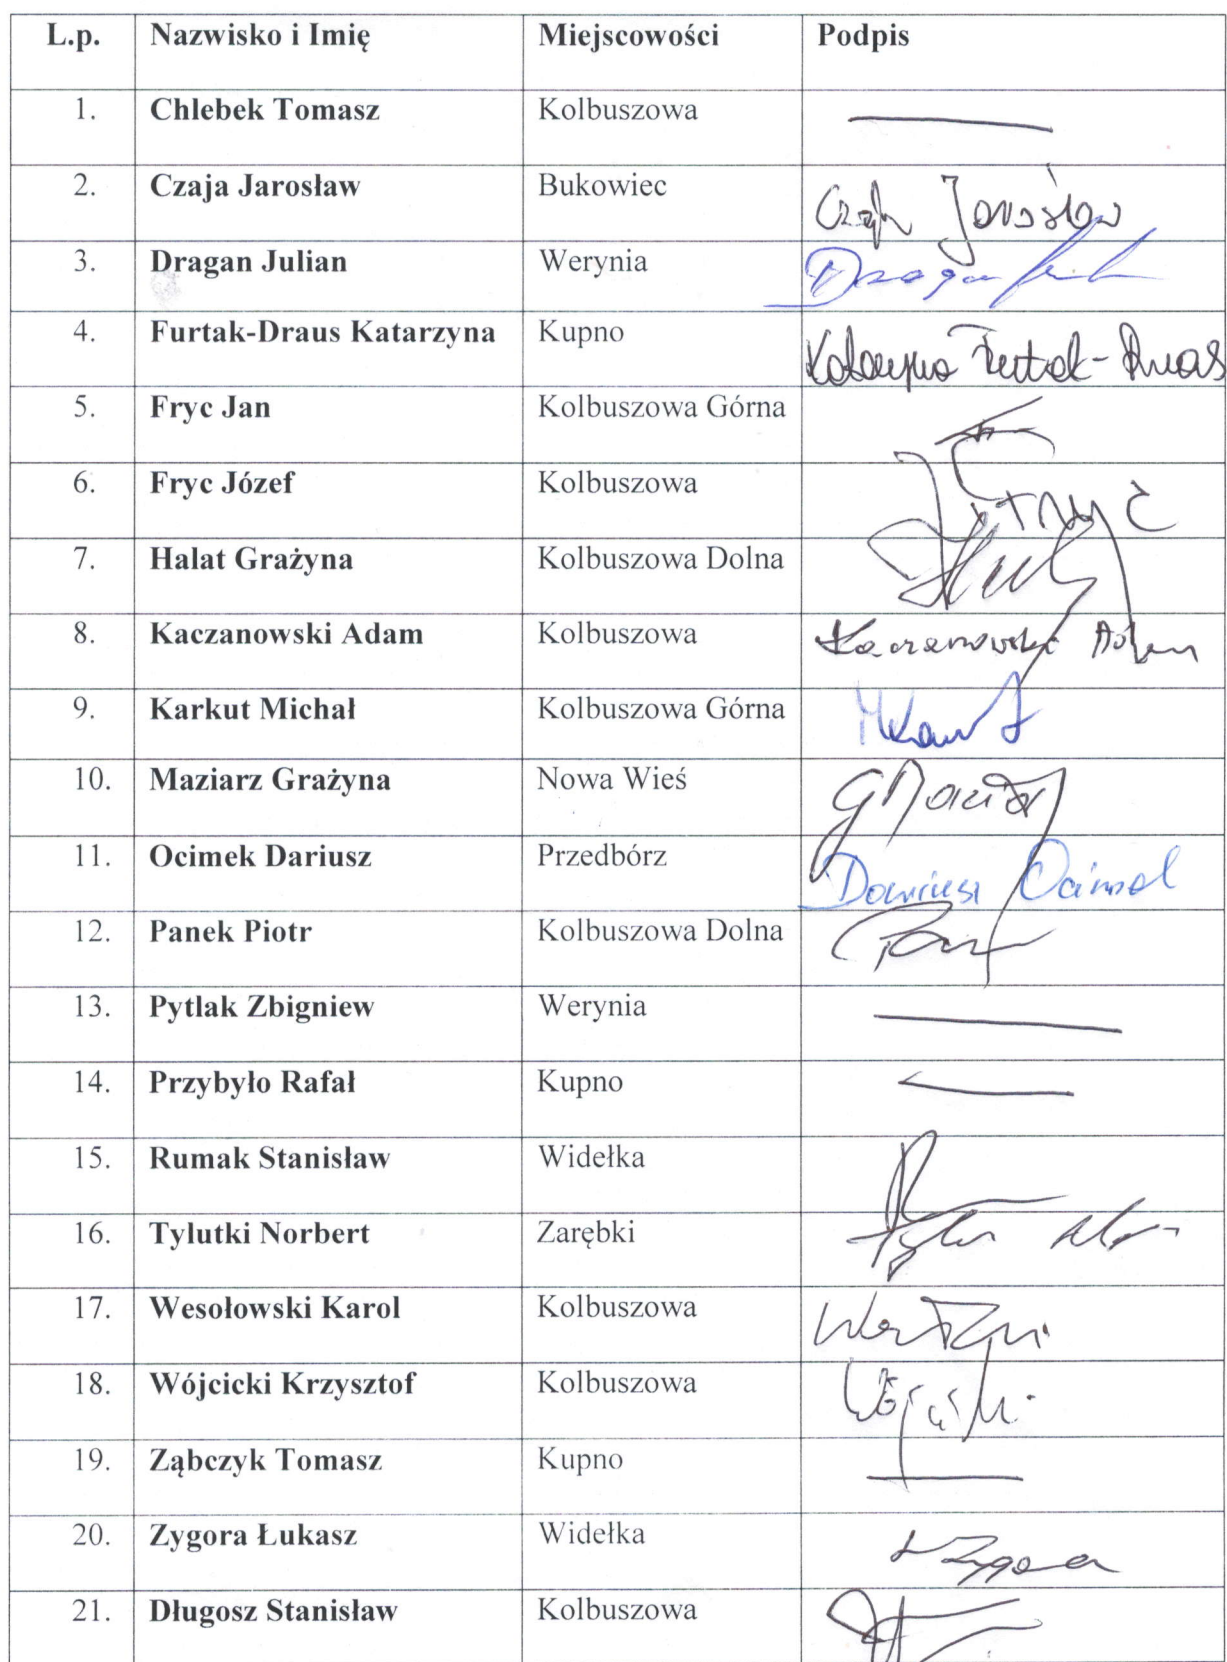 L.p. Nazwisko i Imię Miejscowości Podpis
1. Chlebek Tomasz Kolbuszowa
2. Czaja Jarosław Bukowiec Czaja Jarosław
3. Dragan Julian Werynia Dragan
4. Furtak-Draus Katarzyna Kupno Katarzyna Furtak-Draus
5. Fryc Jan Kolbuszowa Górna
6. Fryc Józef Kolbuszowa Fryc
7. Halat Grażyna Kolbuszowa Dolna
8. Kaczanowski Adam Kolbuszowa Kaczanowski Adam
9. Karkut Michał Kolbuszowa Górna
10. Maziarz Grażyna Nowa Wieś
11. Ocimek Dariusz Przedbórz Dariusz Ocimek
12. Panek Piotr Kolbuszowa Dolna
13. Pytlak Zbigniew Werynia
14. Przybyło Rafał Kupno
15. Rumak Stanisław Widełka
16. Tylutki Norbert Zarębki
17. Wesołowski Karol Kolbuszowa
18. Wójcicki Krzysztof Kolbuszowa Wójcicki
19. Ząbczyk Tomasz Kupno
20. Zygora Łukasz Widełka Ł Zygora
21. Długosz Stanisław Kolbuszowa